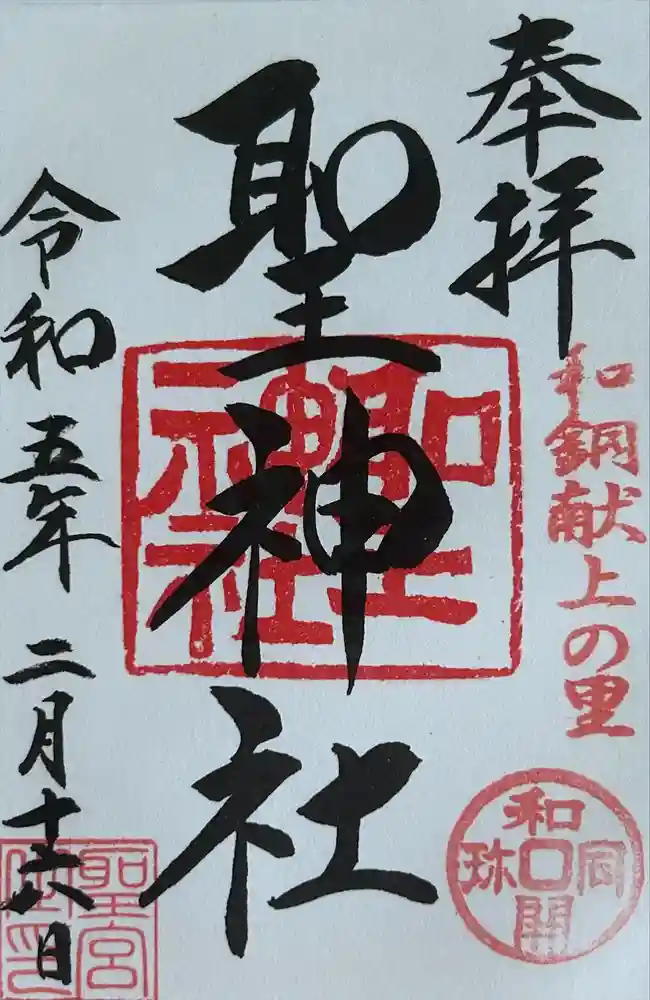 奉拝
和銅献上の里
和同開珎
聖神社
聖神社
令和五年 二月十六日
聖宮